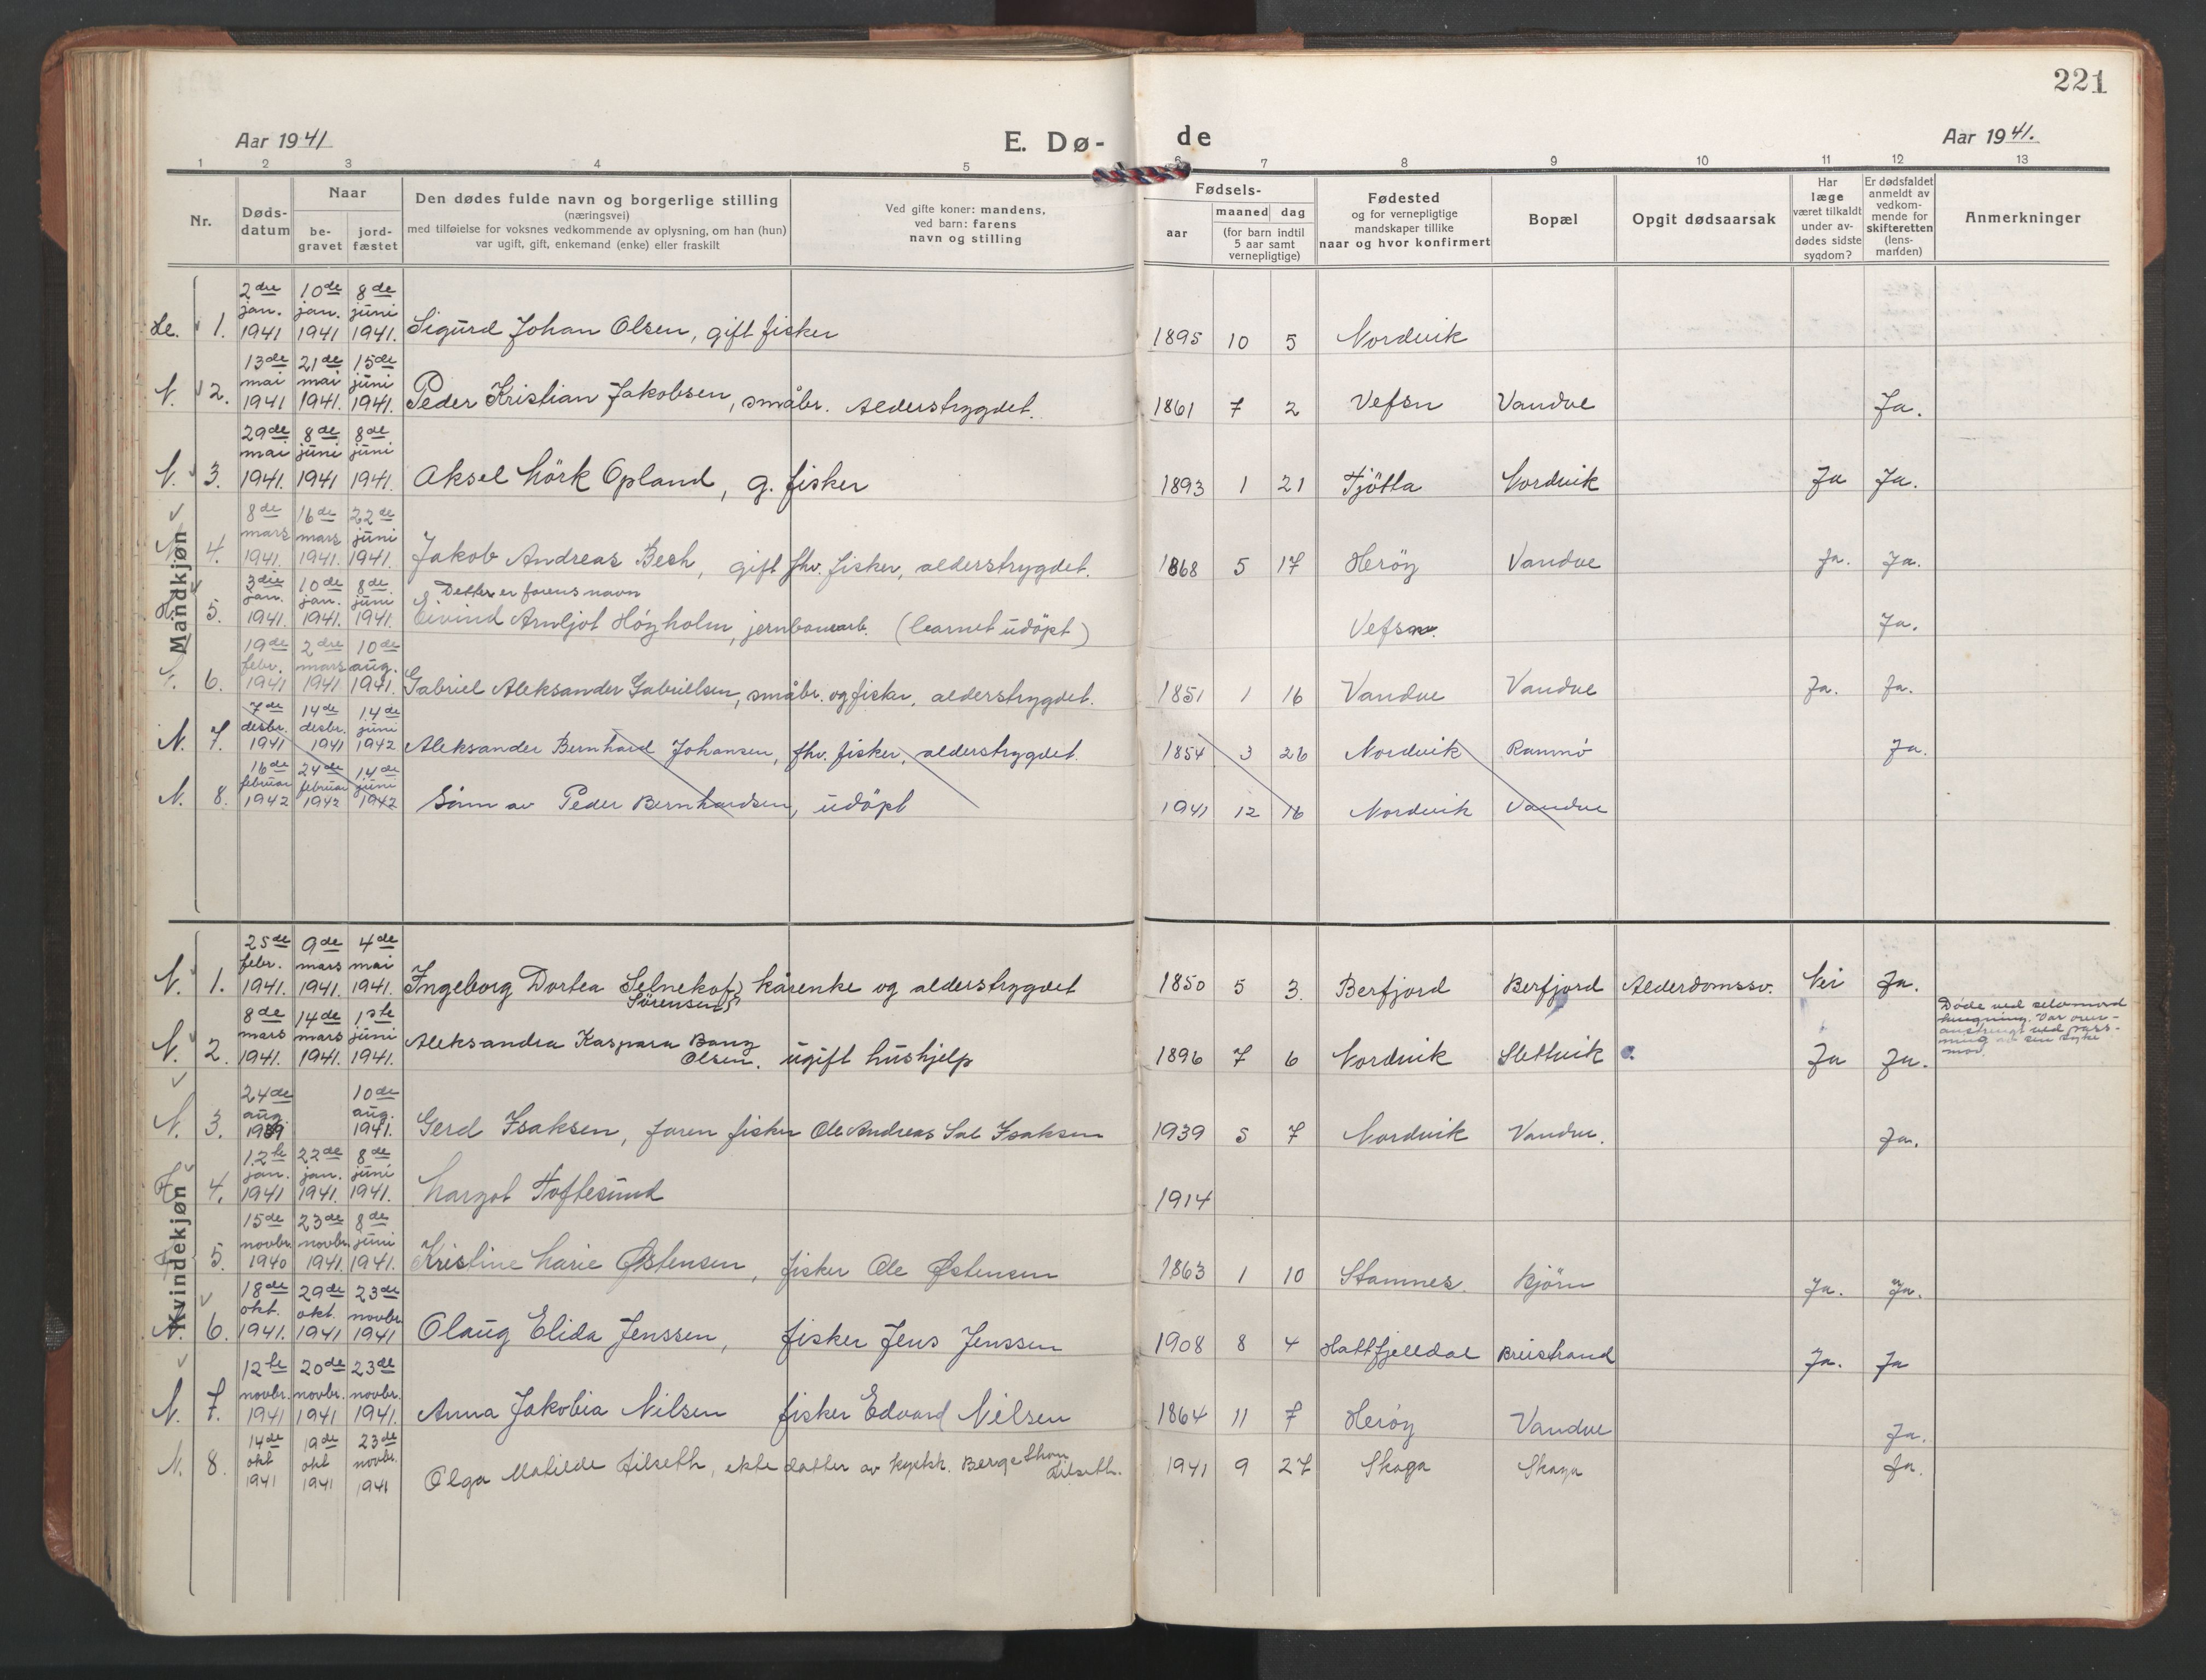 221
Aar 1941 E. Dø- de Aar 1941.
1 2 3 4 5 6 7 8 9 10 11 12 13
Nr.
Døds-
datum
Naar
be-
gravet
jord-
fæstet
Den dødes fulde navn og borgerlige stilling
(næringsvei)
med tilføielse for voksnes vedkommende av oplysning, om han (hun)
var ugift, gift, enkemand (enke) eller fraskilt
Ved gifte koner: mandens,
ved barn: farens
navn og stilling
Fødsels-
aar
maaned dag
(for barn indtil
5 aar samt
vernepligtige)
Fødested
og for vernepligtige
mandskaper tillike
naar og hvor konfirmert
Bopæl
Opgit dødsaarsak
Har
læge
været tilkaldt
under av-
dødes sidste
sygdom?
Er dødsfaldet
anmeldt av
vedkom-
mende for
skifteretten
(lens-
manden)
Anmerkninger
Mandkjøn
2dre 10de 8de
jan. jan. juni
1. 1941 1941 1941. Sigurd Johan Olsen, gift fisker 1895 10 5 Nordvik
13de 21de 15de
mai mai juni
N. 2. 1941 1941. 1941. Peder Kristian Jakobsen, småbr. Alderstrygdet. 1861 7 2 Vefsn Vandve Ja.
29de 8de 8de
mai juni juni
N. 3. 1941. 1941 1941. Aksel Mörk Opland, g. fisker 1893 1 21 Tjötta Nordvik Ja Ja.
8de 16de 22de
mars mars juni
N. 4. 1941. 1941. 1941. Jakob Andreas Bech, gift fhv. fisker, alderstrygdet. 1868 5 17 Herøy Vandve Ja. Ja.
3die 10de 8de Dette er farens navn
jan. jan. juni
5. 1941. 1941. 1941. Eivind Arnljot Höyholm, jernbanearb. (barnet udöpt) Vefsn. Ja.
19de 2dre 10de
febr. mars aug.
6. 1941 1941 1941. Gabriel Aleksander Gabrielsen, småbr. og fisker, alderstrygdet. 1851 1 16 Vandve Vandve Ja. Ja.
7de 14de 14de
desbr. desbr. juni
N. 7. 1941 1941 1942 Aleksander Bernhard Johansen, fhv. fisker, alderstrygdet. 1854 3 26 Nordvik Ranmö Ja.
16de 24de 14de
februar februar juni
N. 8. 1942 1942 1942 Sönn av Peder Bernhardsen, udöpt 1941 12 16 Nordvik Vandve
Kvindekjøn
25de 9de 4de
febr. mars mai
N. 1. 1941. 1941. 1941. Ingeborg Dortea Selnekof, kårenke og alderstrygdet 1850 5 3. Berfjord Berfjord Alderdomssv. Nei Ja.
Sörensen
8de 14de 1ste
mars mars juni
N. 2. 1941. 1941. 1941. Aleksandra Kaspara Bang
Olsen. ugift hushjelp 1896 7 6 Nordvik Slettvik Ja Ja.
Döde ved selvmord
hengning. Var over-
anstrengt ved pass-
ning av sin syke
mor.
24de 10de
aug. aug.
N. 3. 1939 1941. Gerd Isaksen, faren fisker Ole Andreas Sal Isaksen 1939 5 7 Nordvik Vandve. Ja.
12te 22de 8de
jan. jan. juni
4. 1941 1941. 1941. Margot Toftesund 1914
15de 23de 8de
novbr. novbr. juni
5. 1940 1941. 1941. Kristine Marie Østensen, fisker Ole Østensen 1863 1 10 Stamnes. Bjørn Ja. Ja.
18de 29de 23de
okt. okt. novbr.
N. 6. 1941. 1941 1941 Olaug Elida Jenssen, fisker Jens Jenssen 1908 8 4 Hattfjelldal Breistrand Ja. Ja
12te 20de 23de
novbr. novbr. novbr.
N. 7. 1941 1941 1941. Anna Jakobia Nilsen fisker Edvard Nilsen 1864 11 7 Herøy Vandve Ja.
14de 19de 23de
okt okt novbr.
N. 8. 1941 1941 1941 Olga Matilde Lilseth, ekte datter av Berge Lilseth. 1941 9 27 Skaga Skaga Ja.